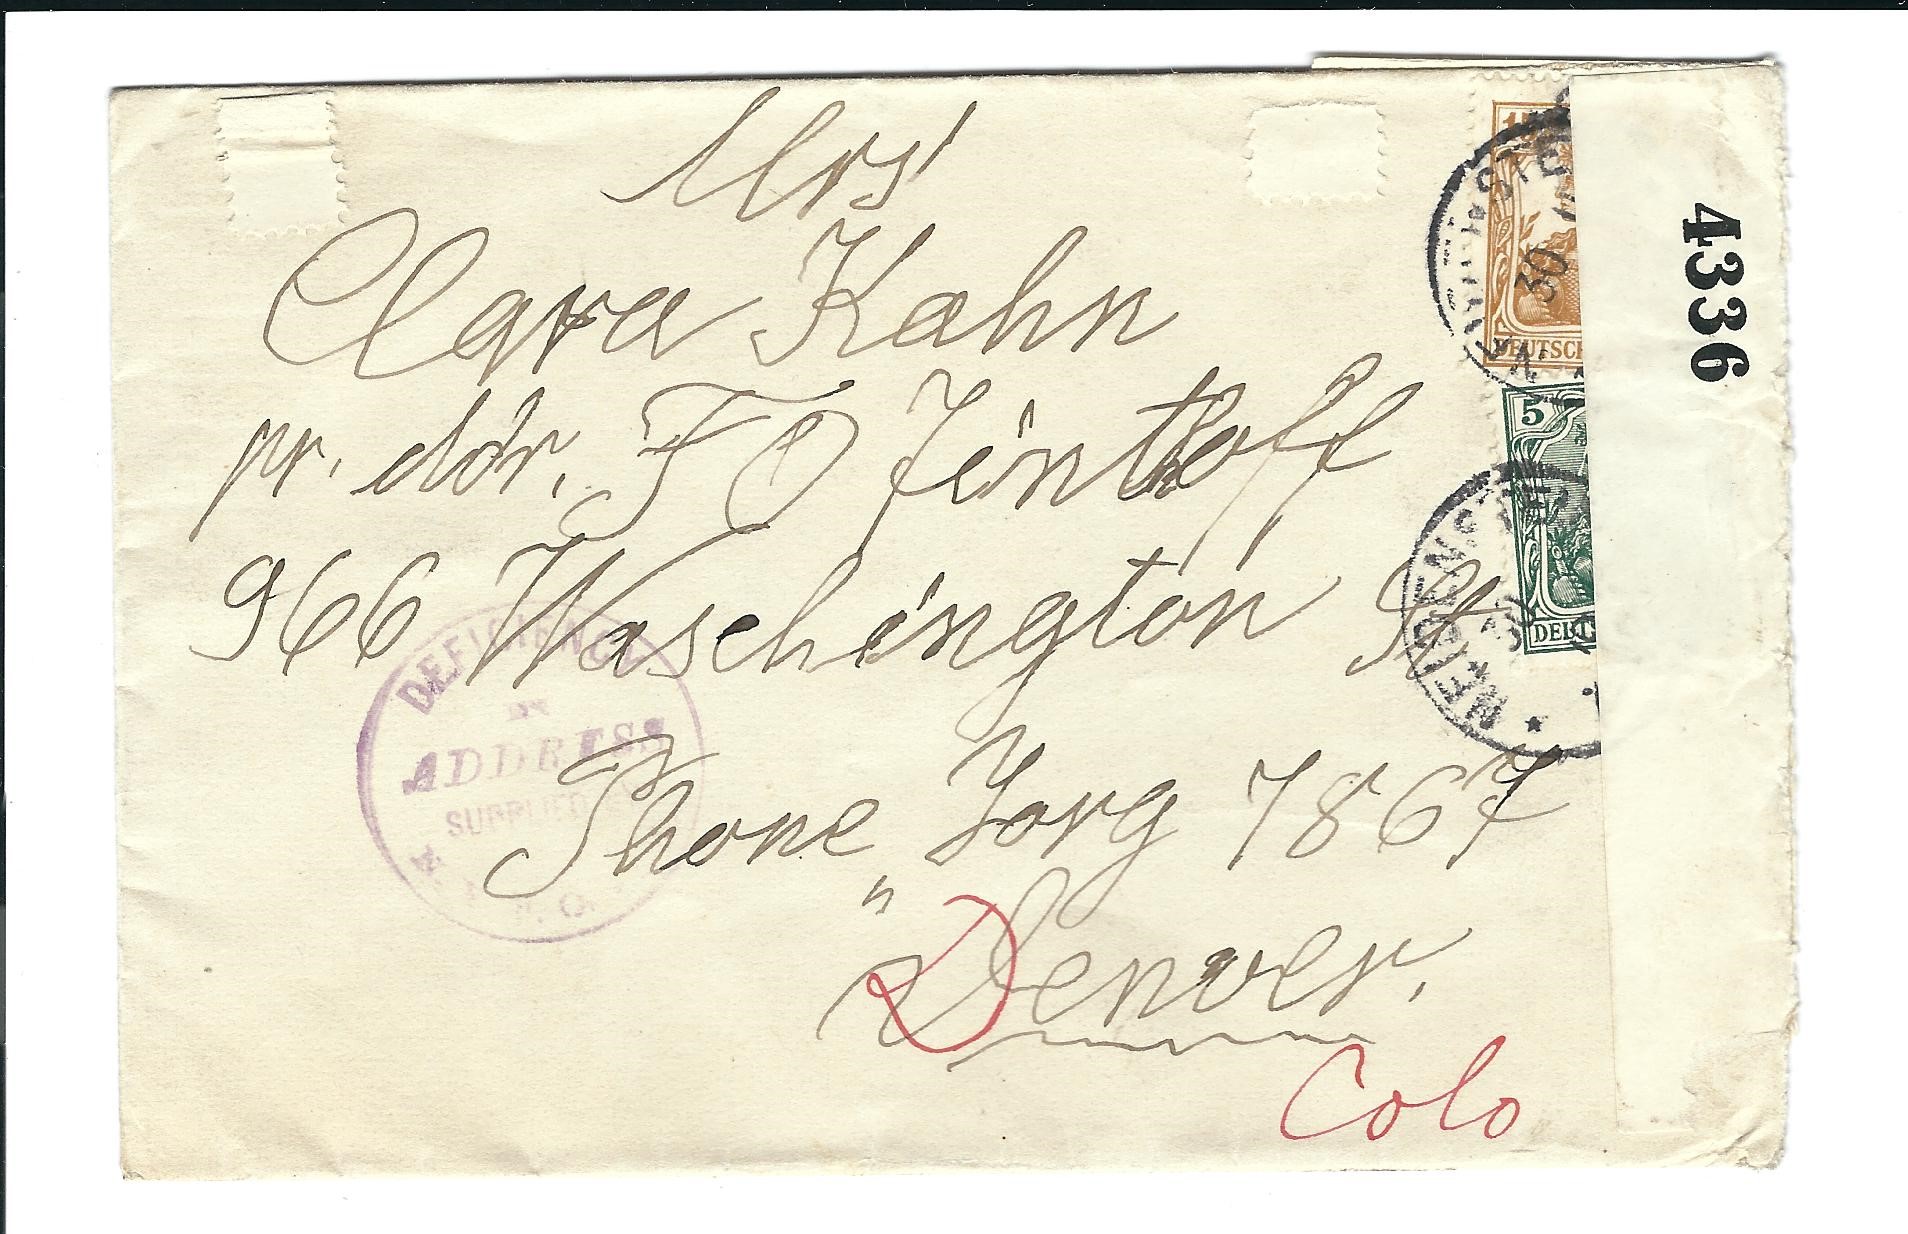 Mrs
Clara Kahn
pr. adr. F O
966 Waschington St
Phone Yorg 7867
" Denver.
Colo
DEFICIENCY
IN
ADDRESS
SUPPLIED
N. Y. P. O.
15
30
DEUTSCH
5
DEUTS
WEIDENSTE
4336